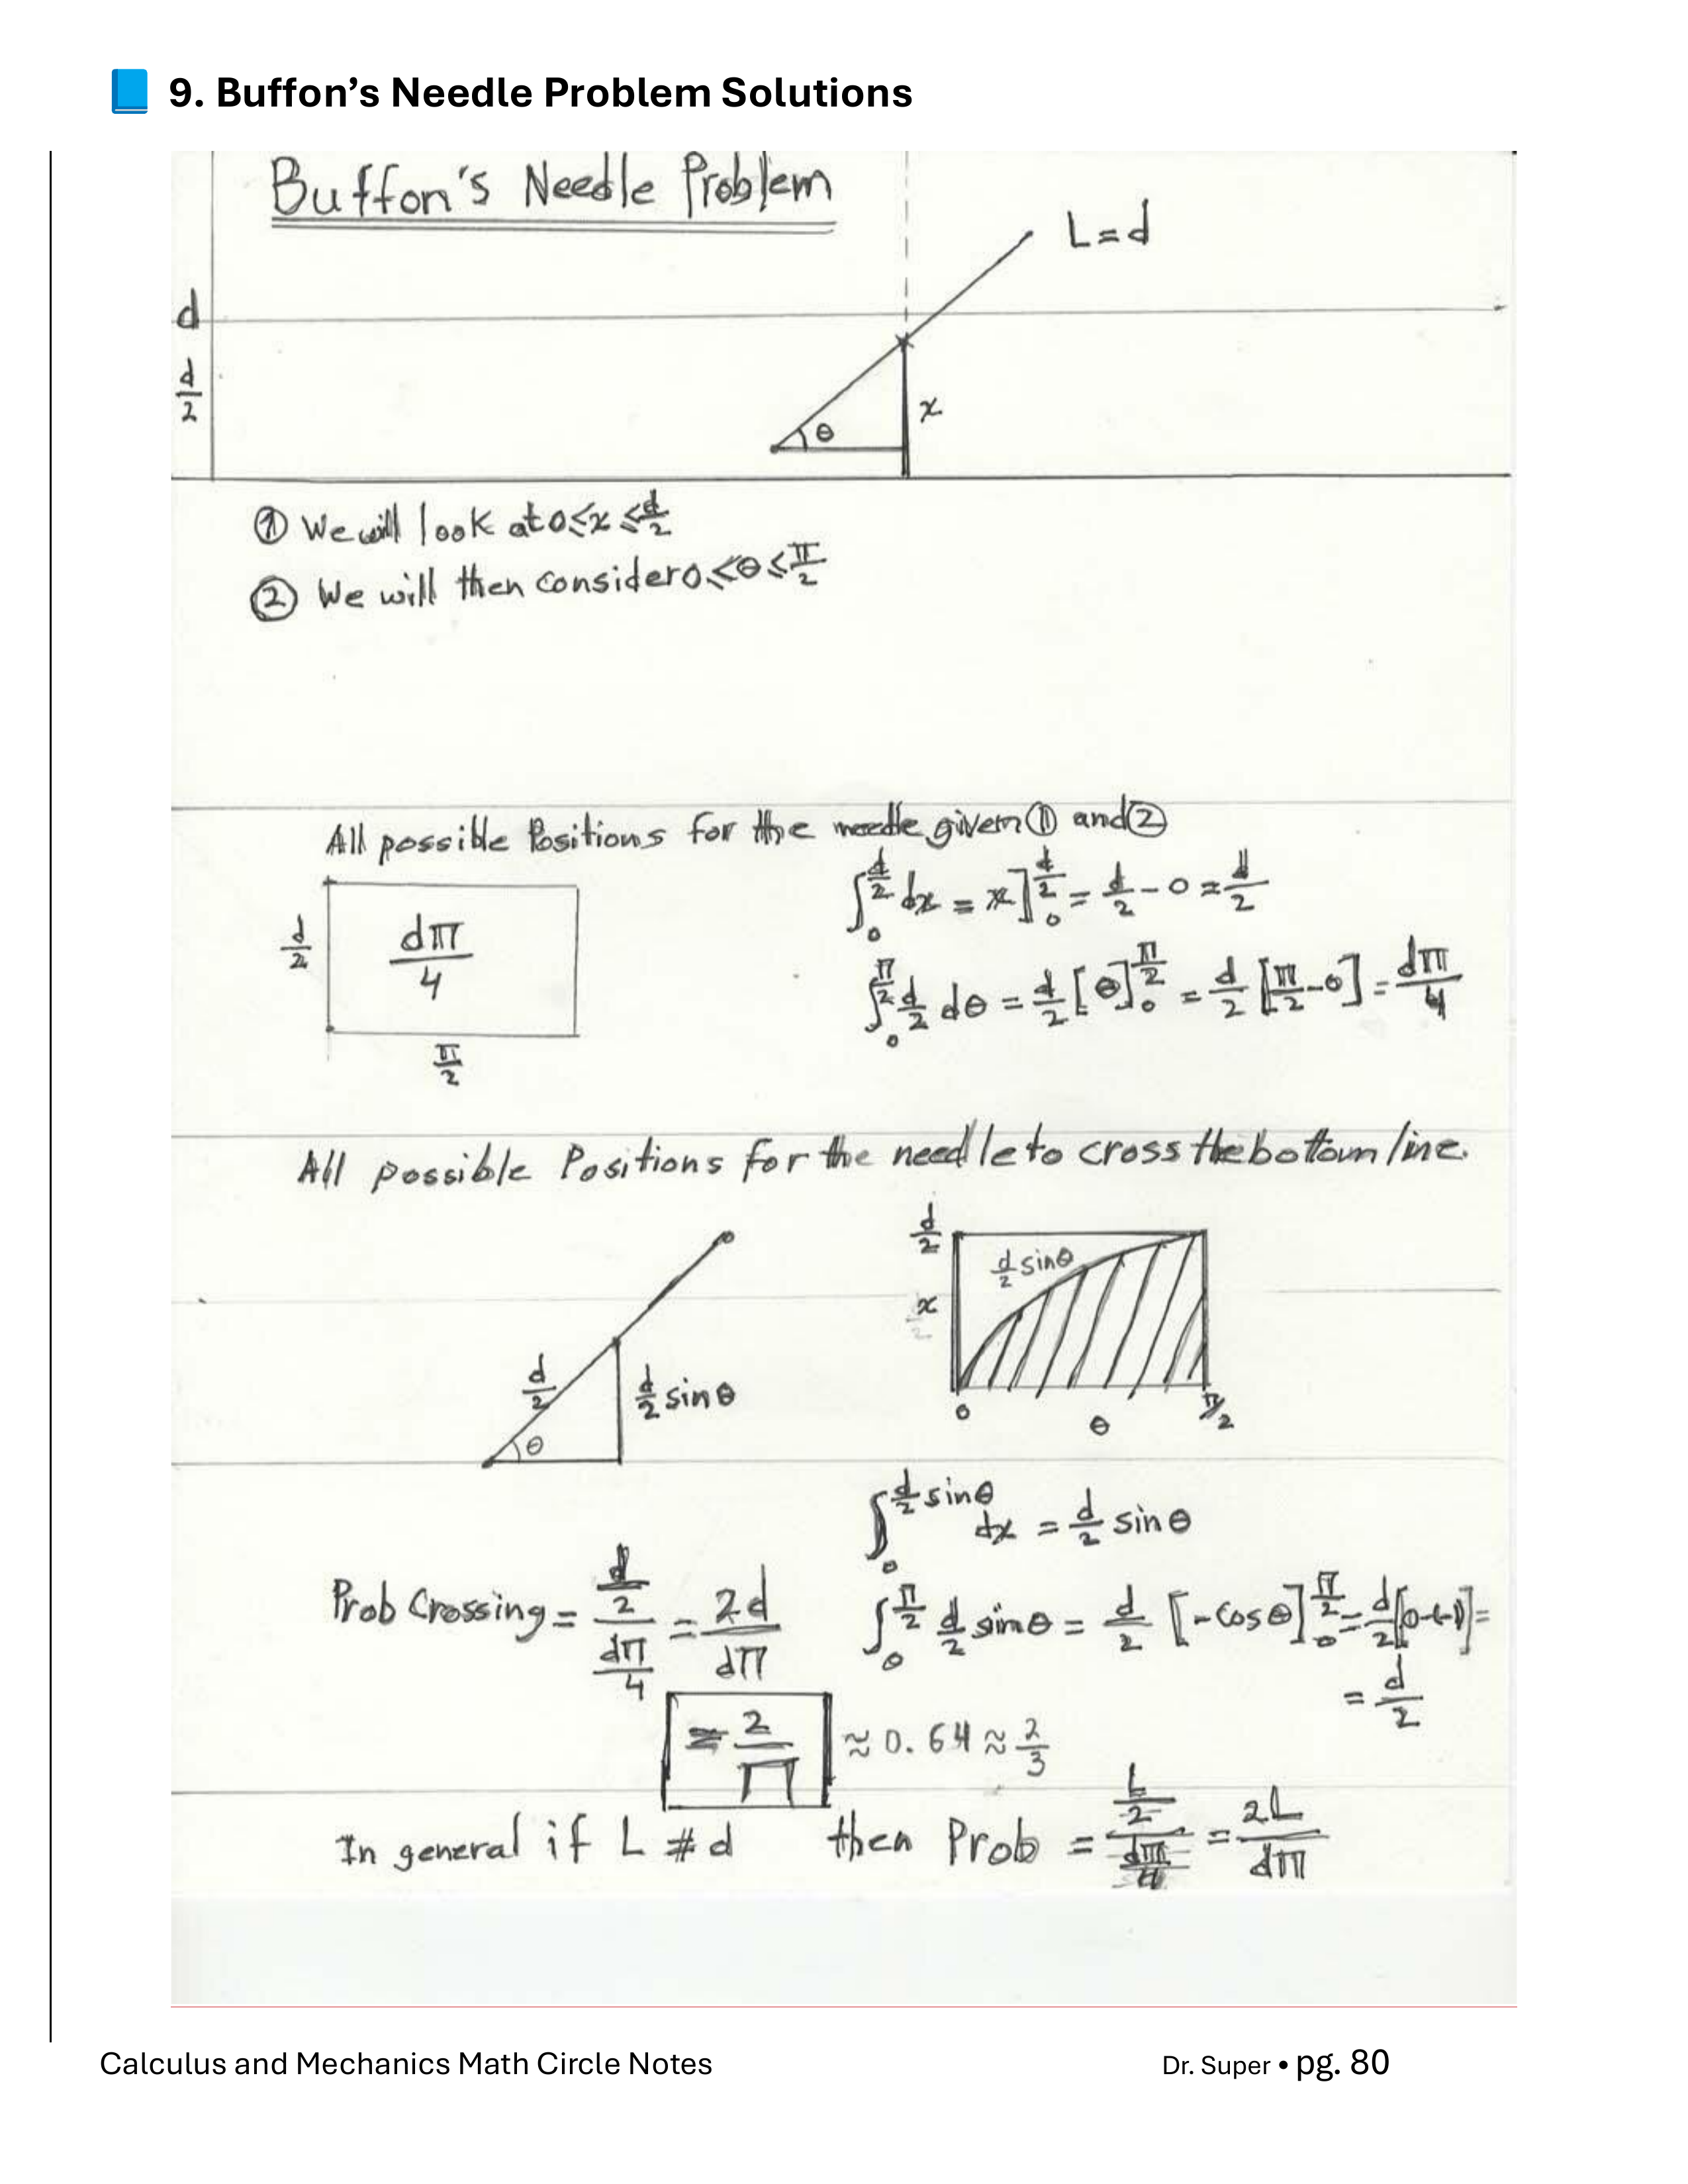 📘 9. Buffon’s Needle Problem Solutions
Buffon's Needle Problem
L=d
d
d/2
x
θ
① We will look at 0≤x≤d/2
② We will then consider 0≤θ≤π/2
All possible Positions for the needle given ① and ②
∫₀^{d/2} dx = x]₀^{d/2} = d/2 - 0 = d/2
d/2
dπ/4
∫₀^{π/2} d/2 dθ = d/2 [θ]₀^{π/2} = d/2 [π/2 - 0] = dπ/4
π/2
All possible Positions for the needle to cross the bottom line.
d/2
d/2 sinθ
x
d/2
d/2 sinθ
θ
0
θ
π/2
∫₀^{d/2 sinθ} dx = d/2 sinθ
Prob Crossing = (d/2)/(dπ/4) = 2d/dπ
∫₀^{π/2} d/2 sinθ = d/2 [-cosθ]₀^{π/2} = d/2 [0-(-1)] =
= d/2
= 2/π ≈ 0.64 ≈ 2/3
In general if L ≠ d then Prob = (L/2)/(dπ/4) = 2L/dπ
Calculus and Mechanics Math Circle Notes
Dr. Super • pg. 80